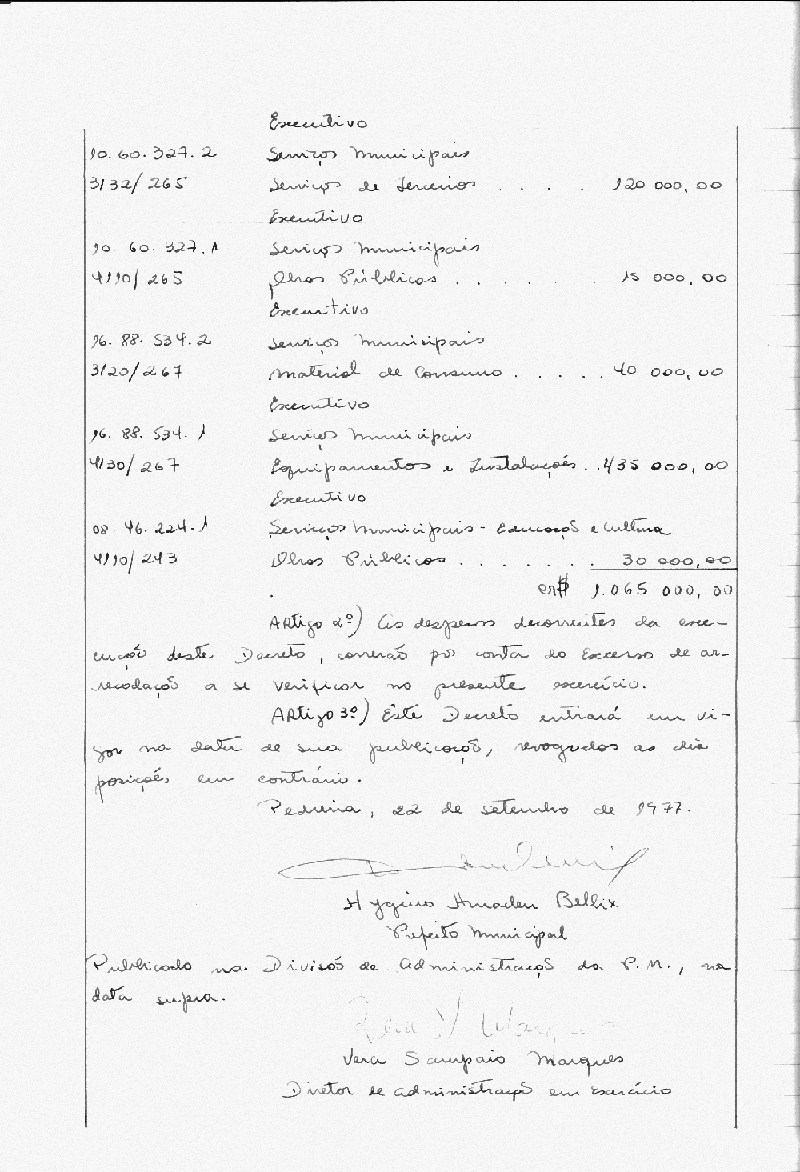 Executivo
10.60.327.2 Serviços Municipais
3132/265 Serviços de Terceiros . . . . 120 000,00
Executivo
10.60.327.1 Serviços Municipais
4110/265 Obras Públicas . . . . . . 15 000,00
Executivo
16.88.534.2 Serviços Municipais
3120/267 Material de Consumo . . . . . 40 000,00
Executivo
16.88.534.1 Serviços Municipais
4130/267 Equipamentos e Instalações . . 435 000,00
Executivo
08.46.224.1 Serviços Municipais - Educação e Cultura
4110/243 Obras Públicas . . . . . . . 30 000,00
cr$ 1.065 000,00
Artigo 2º) As despesas decorrentes da exe-
cução deste Decreto, correrão por conta do Excesso de ar-
recadação a se verificar no presente exercício.
Artigo 3º) Este Decreto entrará em vi-
gor na data de sua publicação, revogadas as dis
posições em contrário.
Pedreira, 22 de setembro de 1977.
Hygino Amadeu Bellix
Prefeito Municipal
Publicado na Divisão de Administração da P.M., na
data supra.
Vera Sampaio Marques
Diretor de Administração em Exercício